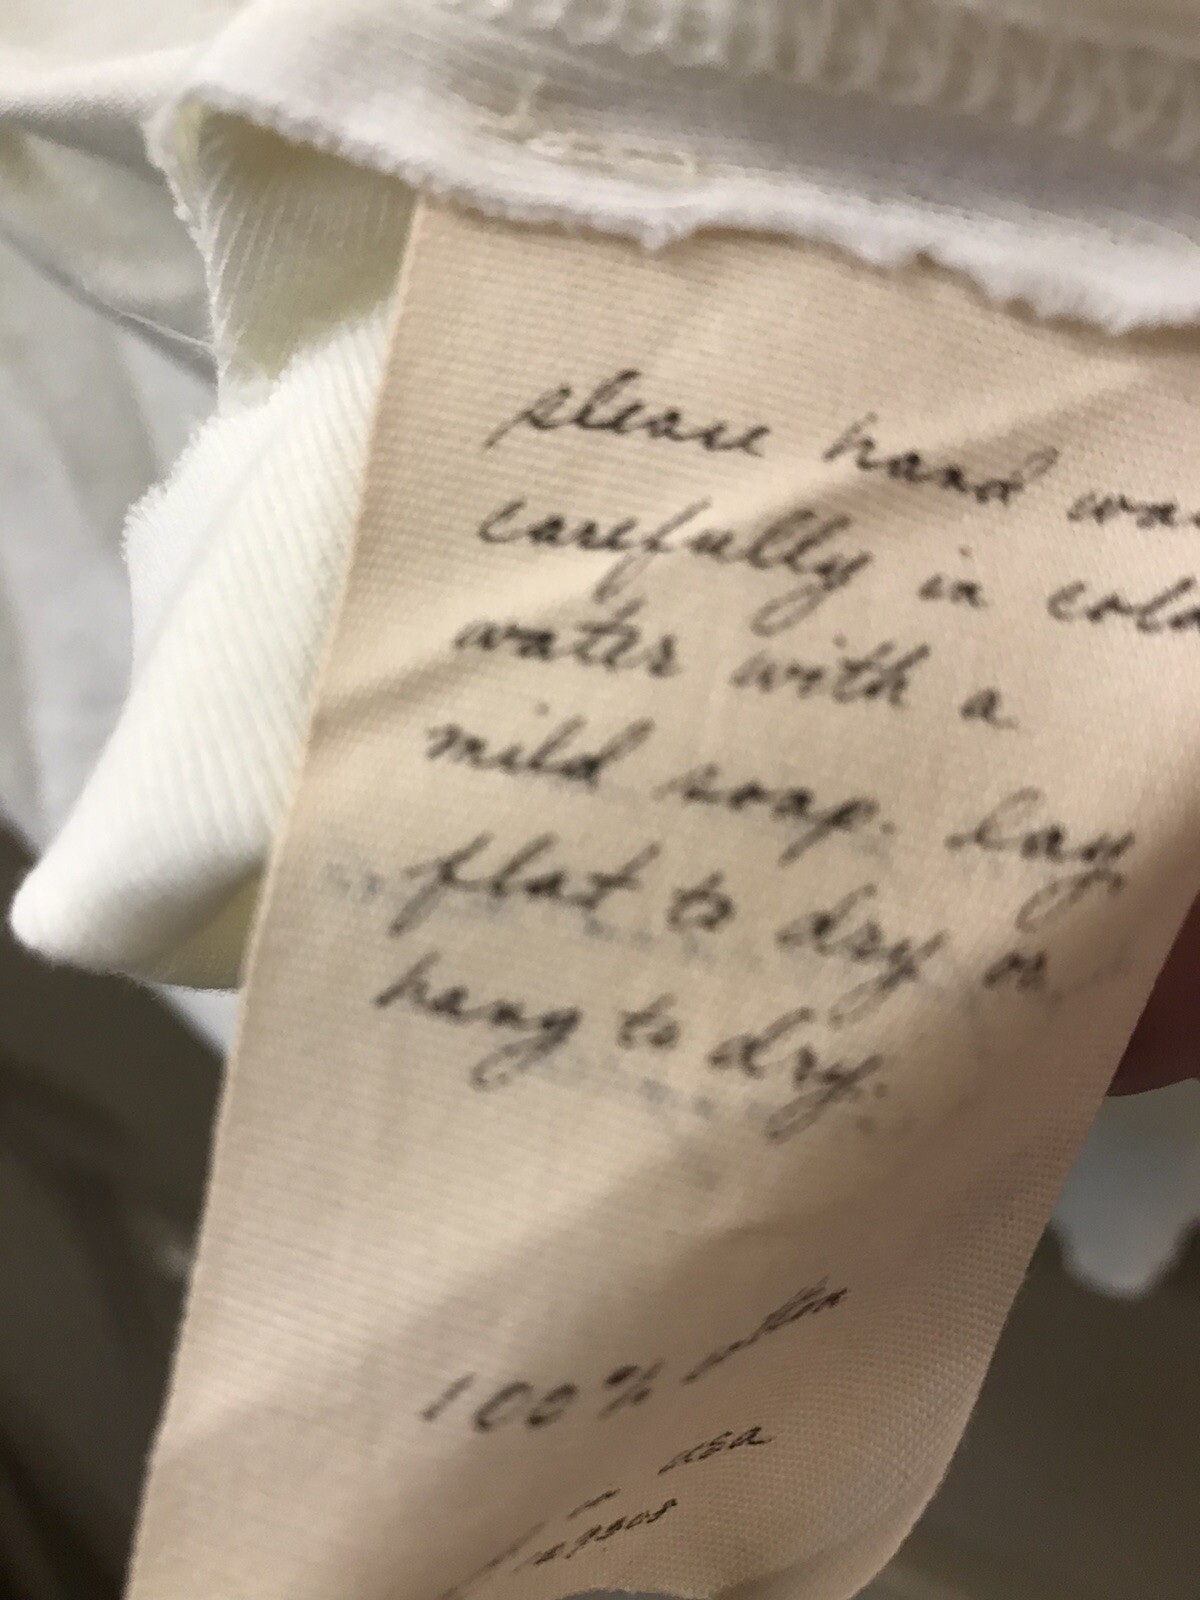 please hand wa
carefully in cold
water with a
mild soap. lay
flat to dry or
hang to dry.
100% cotton
in usa